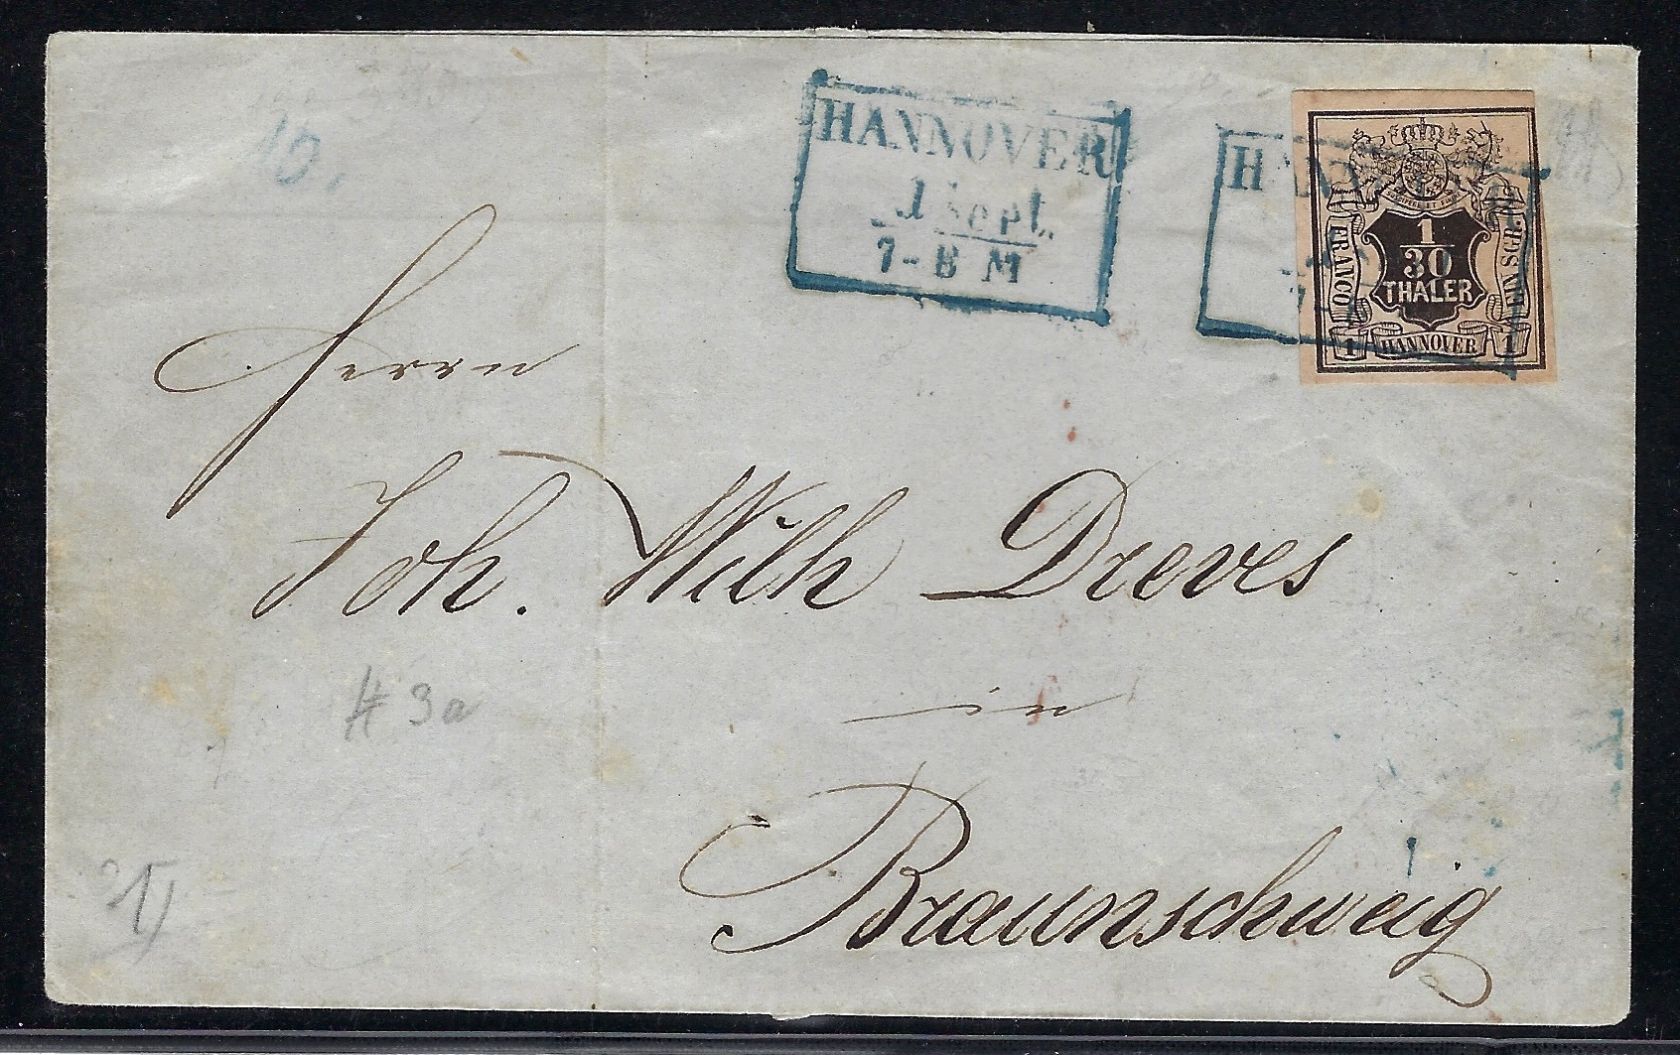 10.
HANNOVER
1 Sept.
7-8 M
FRANCO
1
30
THALER
EIN SGR.
1 HANNOVER 1
Herrn
Joh. Wilh Dreves
in
Braunschweig
# 3a